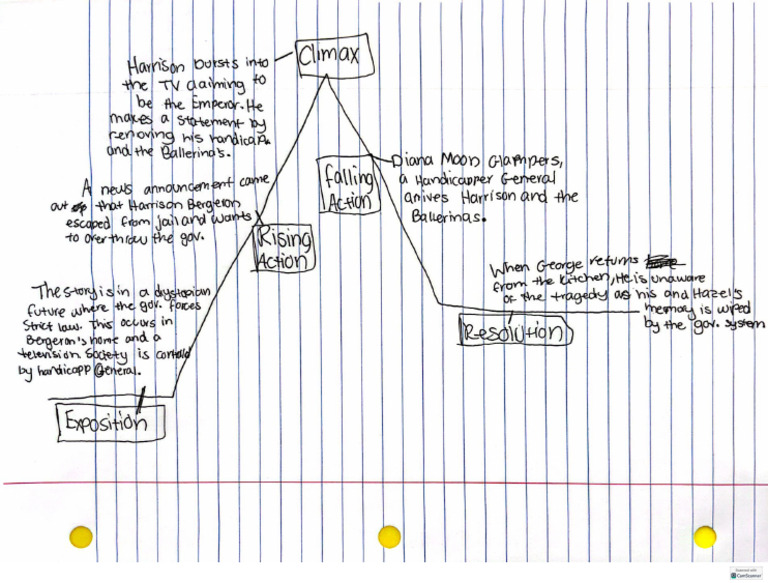 Climax
Harrison bursts into
the TV claiming to
be the Emperor. He
makes a statement by
removing his handicap.
and the Ballerina's.
Falling
Action
Diana Moon Glampers,
a Handicapper General
arrives Harrison and the
Ballerinas.
A news announcement came
out that Harrison Bergeron
escaped from jail and wants
to overthrow the gov.
Rising
Action
The story is in a dystopian
future where the gov. forces
Strict law. This occurs in
Bergeron's home and a
television Society is
by handicapp General.
Exposition
When George returns
from the kitchen, He is unaware
of the tragedy as his and Hazel's
memory is wiped
by the gov. system
Resolution
Scanned with
CamScanner